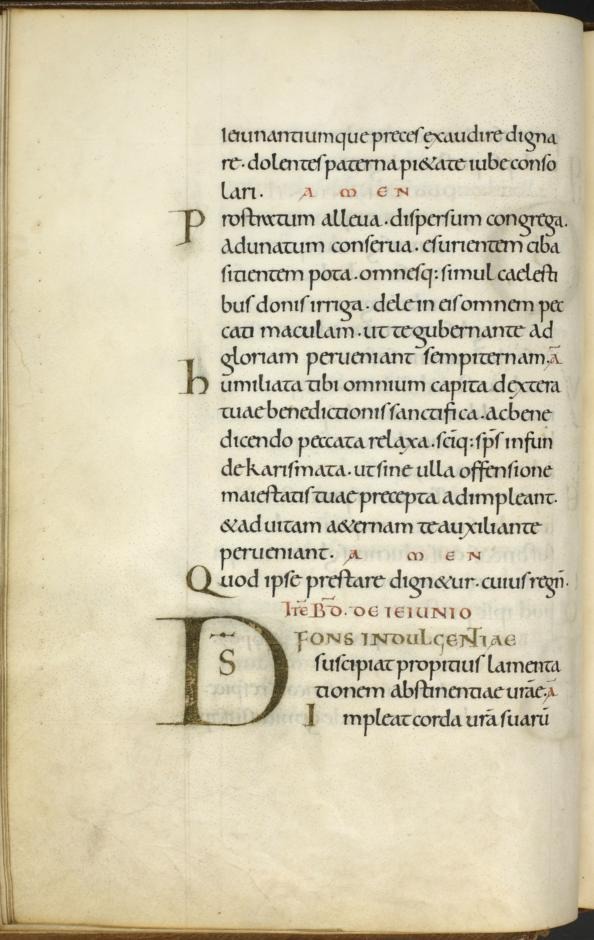 Ieiunantiumque preces exaudire digna
re. dolentes paterna pi&ate iube conso
lari. A M E N
Prostratum alleua. dispersum congrega.
adunatum conserua. esurientem ciba
sitientem pota. omnesq: simul caelesti
bus donis irriga. dele in eis omnem pec
cati maculam. ut te gubernante ad
gloriam perueniant sempiternam. Ā
humiliata tibi omnium capita dextera
tuae benedictionis sanctifica. ac bene
dicendo peccata relaxa. scīq: sp̄s infun
de karismata. ut sine ulla offensione
maiestatis tuae precepta adimpleant.
&ad uitam a&ernam te auxiliante
perueniant. A M E N
Quod ipse prestare dign&ur. cuius regn̄.
ITĒ B̄D. DE IEIUNIO
D̄S FONS INDULGENTIAE
suscipiat propitius lamenta
tionem abstinentiae ur̄ae. Ā
Impleat corda ur̄a suarū